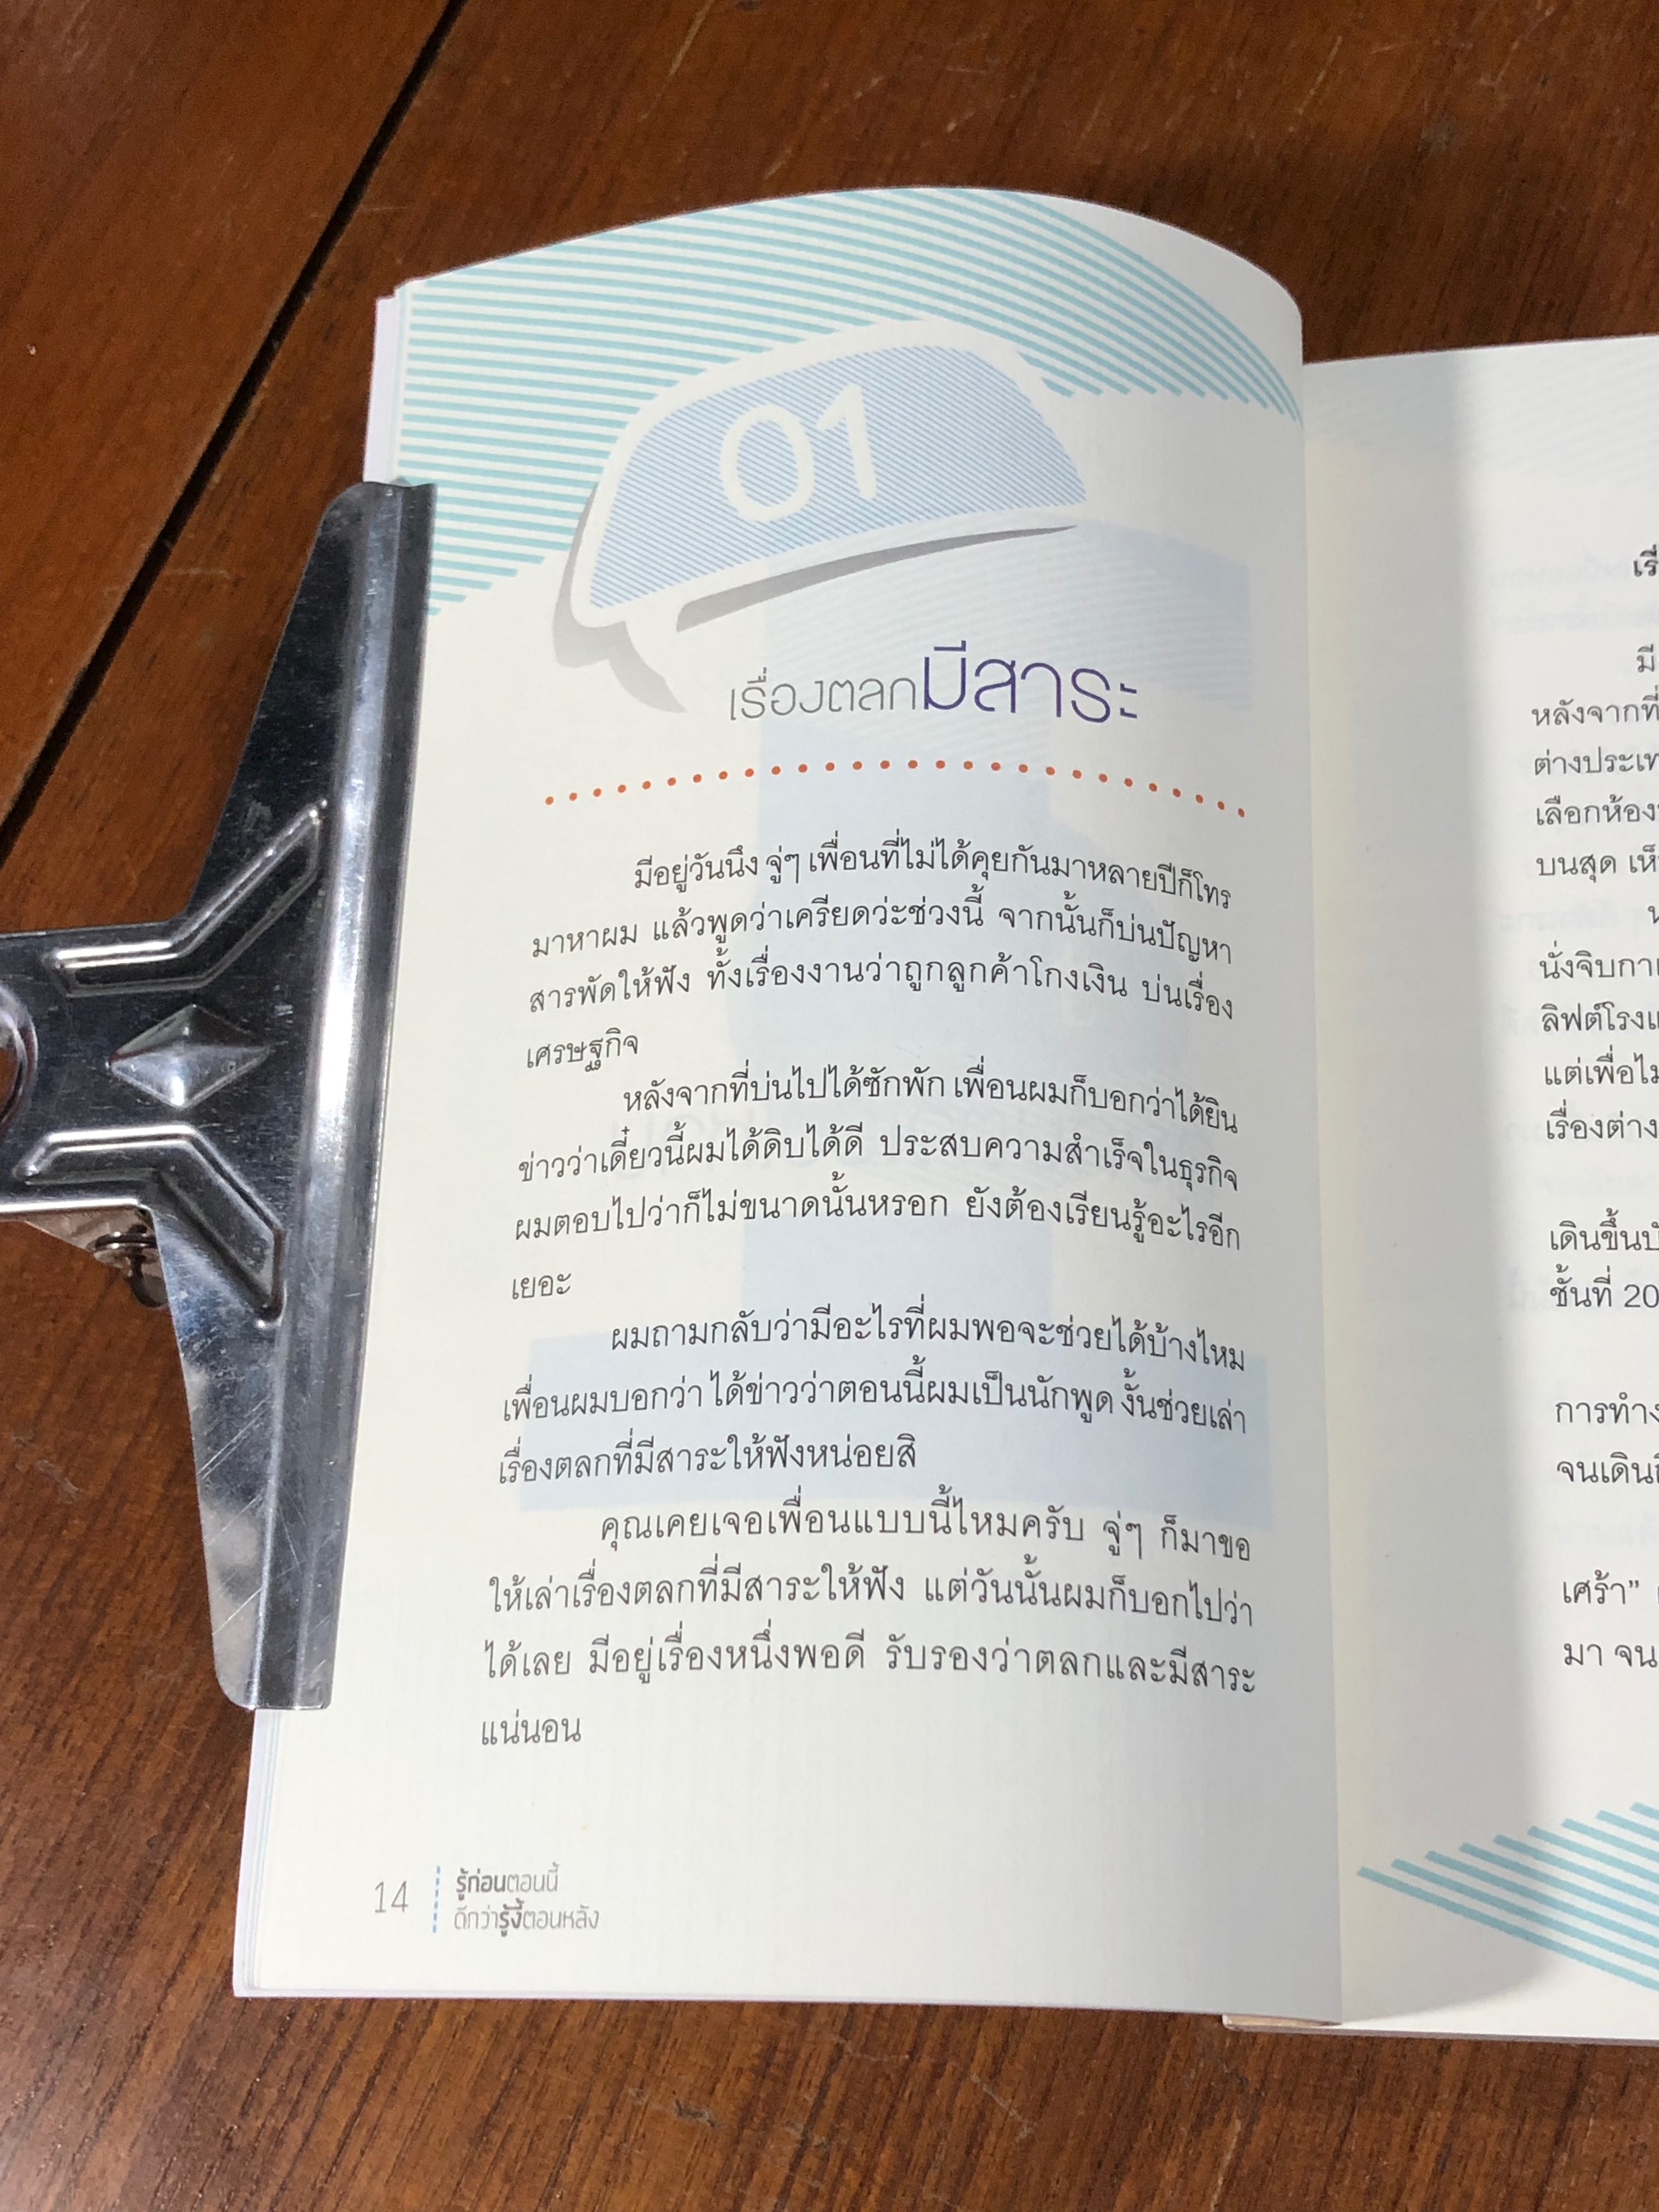 01
เรื่องตลกมีสาระ
มีอยู่วันนึง จู่ๆ เพื่อนที่ไม่ได้คุยกันมาหลายปีก็โทร
มาหาผม แล้วพูดว่าเครียดว่ะช่วงนี้ จากนั้นก็บ่นปัญหา
สารพัดให้ฟัง ทั้งเรื่องงานว่าถูกลูกค้าโกงเงิน บ่นเรื่อง
เศรษฐกิจ
หลังจากที่บ่นไปได้ซักพัก เพื่อนผมก็บอกว่าได้ยิน
ข่าวว่าเดี๋ยวนี้ผมได้ดิบได้ดี ประสบความสำเร็จในธุรกิจ
ผมตอบไปว่าก็ไม่ขนาดนั้นหรอก ยังต้องเรียนรู้อะไรอีก
เยอะ
ผมถามกลับว่ามีอะไรที่ผมพอจะช่วยได้บ้างไหม
เพื่อนผมบอกว่า ได้ข่าวว่าตอนนี้ผมเป็นนักพูด งั้นช่วยเล่า
เรื่องตลกที่มีสาระให้ฟังหน่อยสิ
คุณเคยเจอเพื่อนแบบนี้ไหมครับ จู่ๆ ก็มาขอ
ให้เล่าเรื่องตลกที่มีสาระให้ฟัง แต่วันนั้นผมก็บอกไปว่า
ได้เลย มีอยู่เรื่องหนึ่งพอดี รับรองว่าตลกและมีสาระ
แน่นอน
14
รู้ก่อนตอนนี้
ดีกว่ารู้งี้ตอนหลัง
มี
หลังจากที่
ต่างประเท
เลือกห้อง
บนสุด
ลิฟต์โรง
แต่เพื่อ
เรื่องต่าง
เดินขึ้น
ชั้นที่ 20
การทำง
จนเดิน
เศร้า”
มา จน